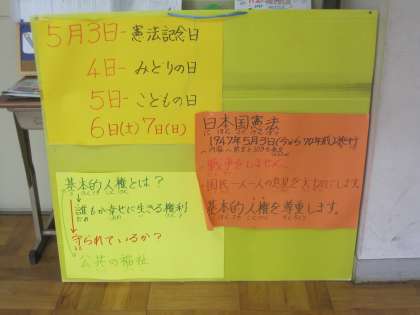 5月3日-憲法記念日
4日-みどりの日
5日-こどもの日
6日(土)7日(日)
日本国憲法
にほんこくけんぽう
1947年5月3日(今から70年前)に施行
・戦争をしません
・国民一人一人の意見を大切にします。
・基本的人権を尊重します。
基本的人権とは？
誰もが幸せに生きる権利
守られているか？
公共の福祉